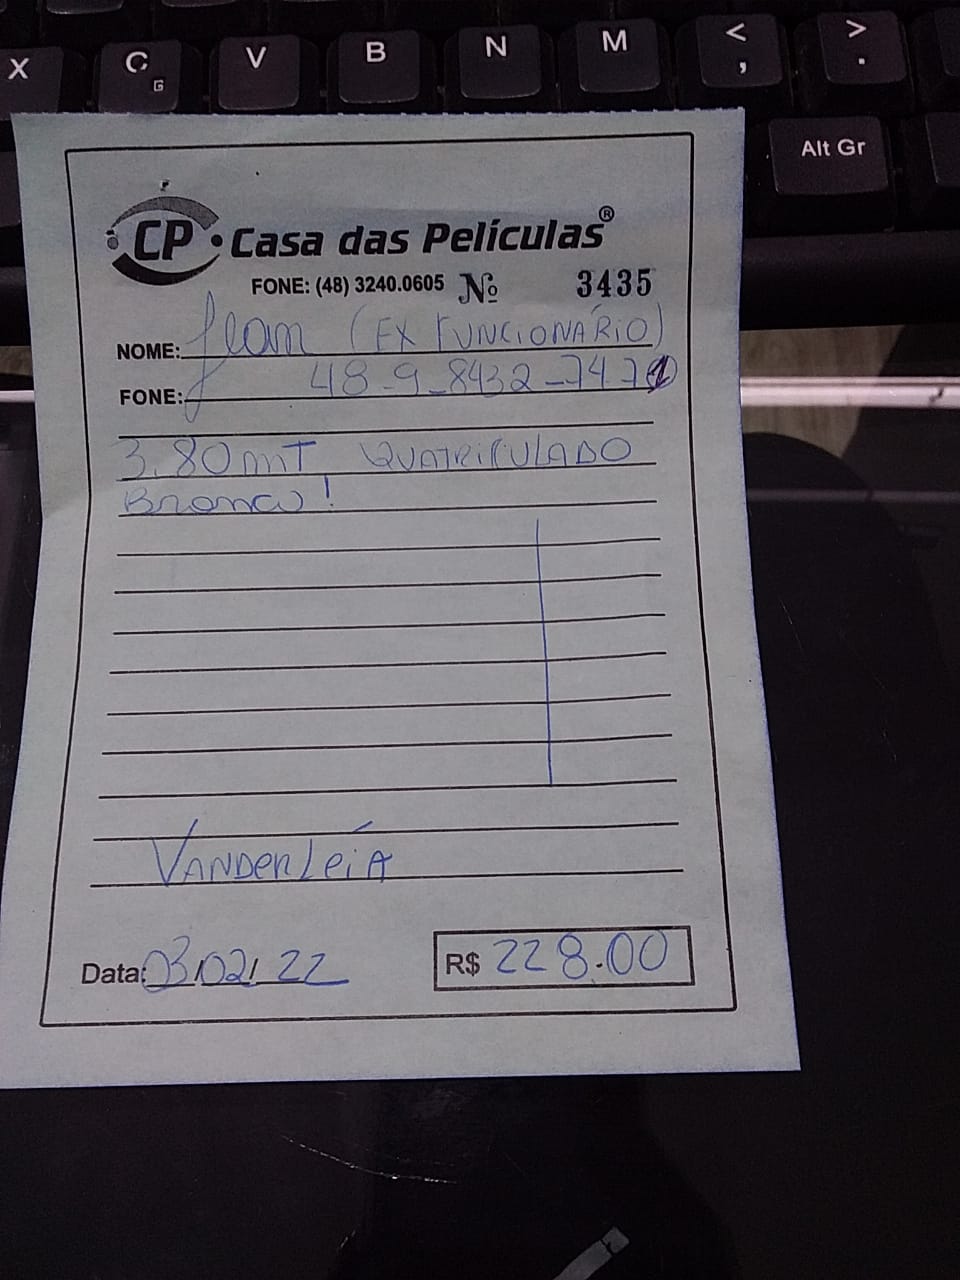 X C G V B N M < , > .
Alt Gr
CP Casa das Películas®
FONE: (48) 3240.0605 Nº 3435
NOME: Jean (EX FUNCIONÁRIO)
FONE: 48-9-8432-7471
3,80mT QUATRICULADO
Branco!
VANDERLEiA
Data: 03/02/22 R$ 228.00